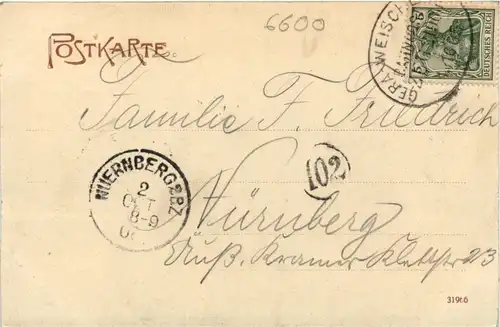 6600
POSTKARTE.
GERA WEISCH
DEUTSCHES REICH
Familie F. Friedrich
NUERNBERG 2 BZ
2
OKT
8-9
102
Nürnberg
Äuß. Kramer Klettstr 23
31966